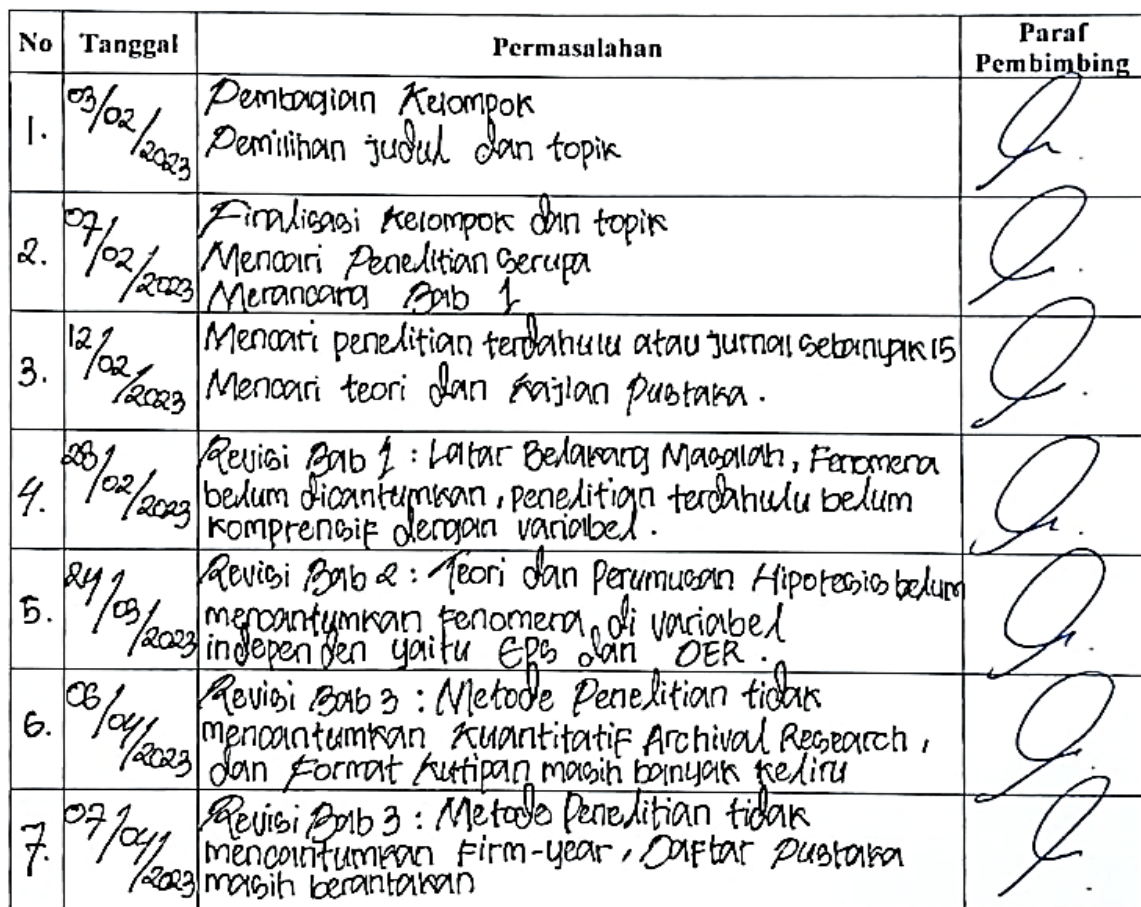 No Tanggal Permasalahan Paraf Pembimbing
1. 03/02/2023 Pembagian Kelompok
Pemilihan judul dan topik
2. 07/02/2023 Finalisasi Kelompok dan topik
Mencari Penelitian Serupa
Merancang Bab 1
3. 12/02/2023 Mencari penelitian terdahulu atau jurnal sebanyak 15
Mencari teori dan Kajian Pustaka.
4. 28/02/2023 Revisi Bab 1 : Latar Belakang Masalah, Fenomena
belum dicantumkan, penelitian terdahulu belum
komprensif dengan variabel.
5. 24/03/2023 Revisi Bab 2 : Teori dan Perumusan Hipotesis belum
mencantumkan Fenomena di variabel
independen yaitu EPS dan DER.
6. 06/04/2023 Revisi Bab 3 : Metode Penelitian tidak
mencantumkan Kuantitatif Archival Research,
dan Format Kutipan masih banyak keliru
7. 07/04/2023 Revisi Bab 3 : Metode Penelitian tidak
mencantumkan Firm-year, Daftar Pustaka
masih berantakan